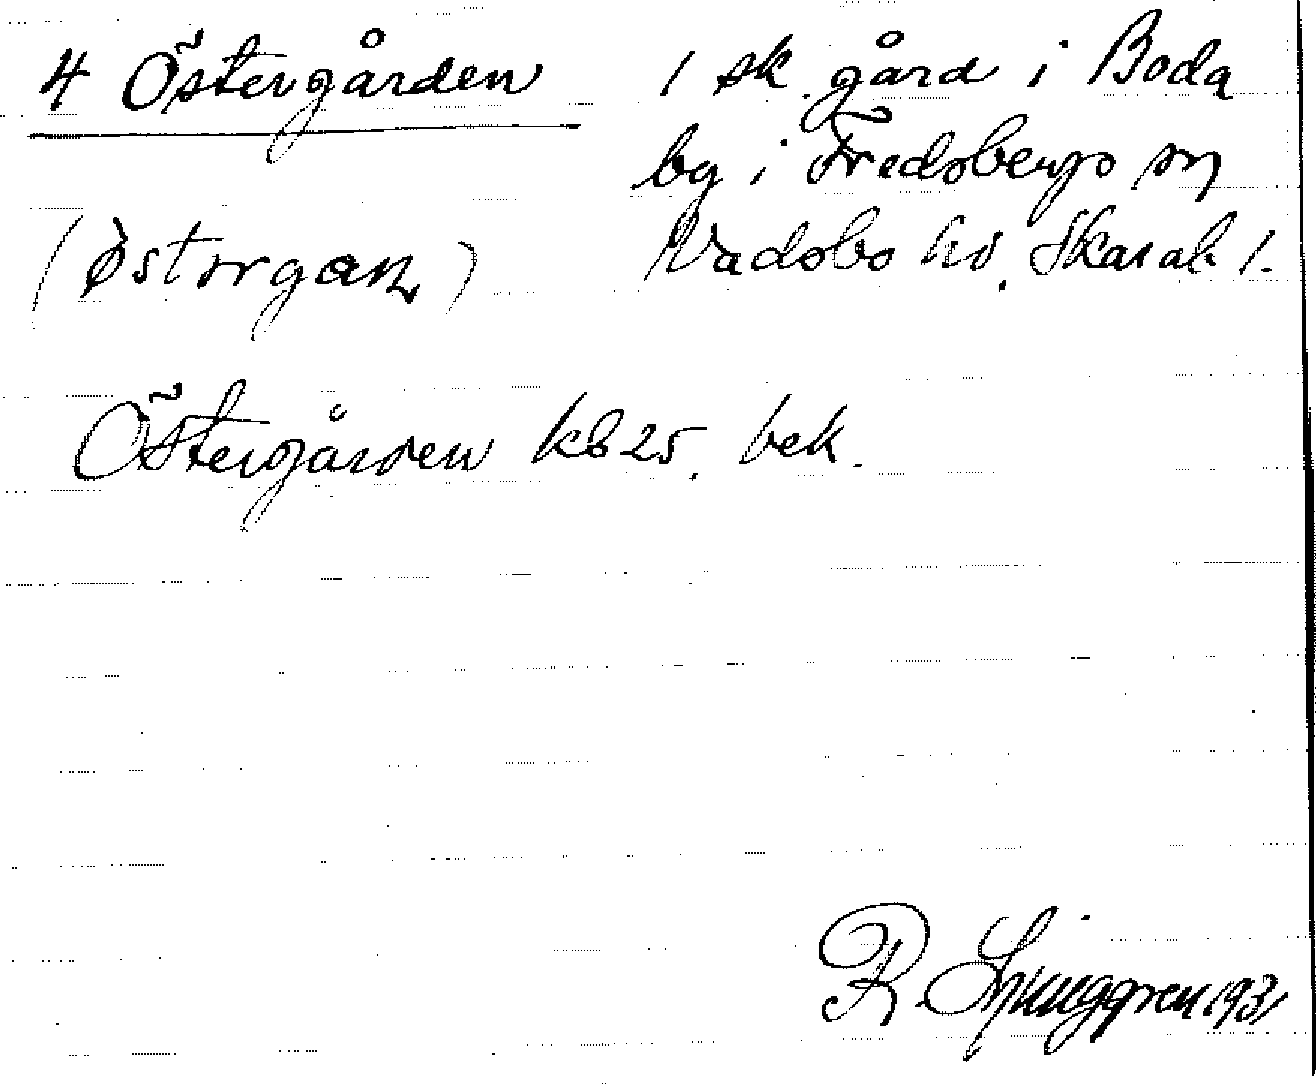 4 Östergården
1 sk. gård i Boda
by i Fredsbergs sn
Vadsbo hd. Skarab. l.
(östərgan)
Östergården kb 25, bek.
R. Ljunggren 1931